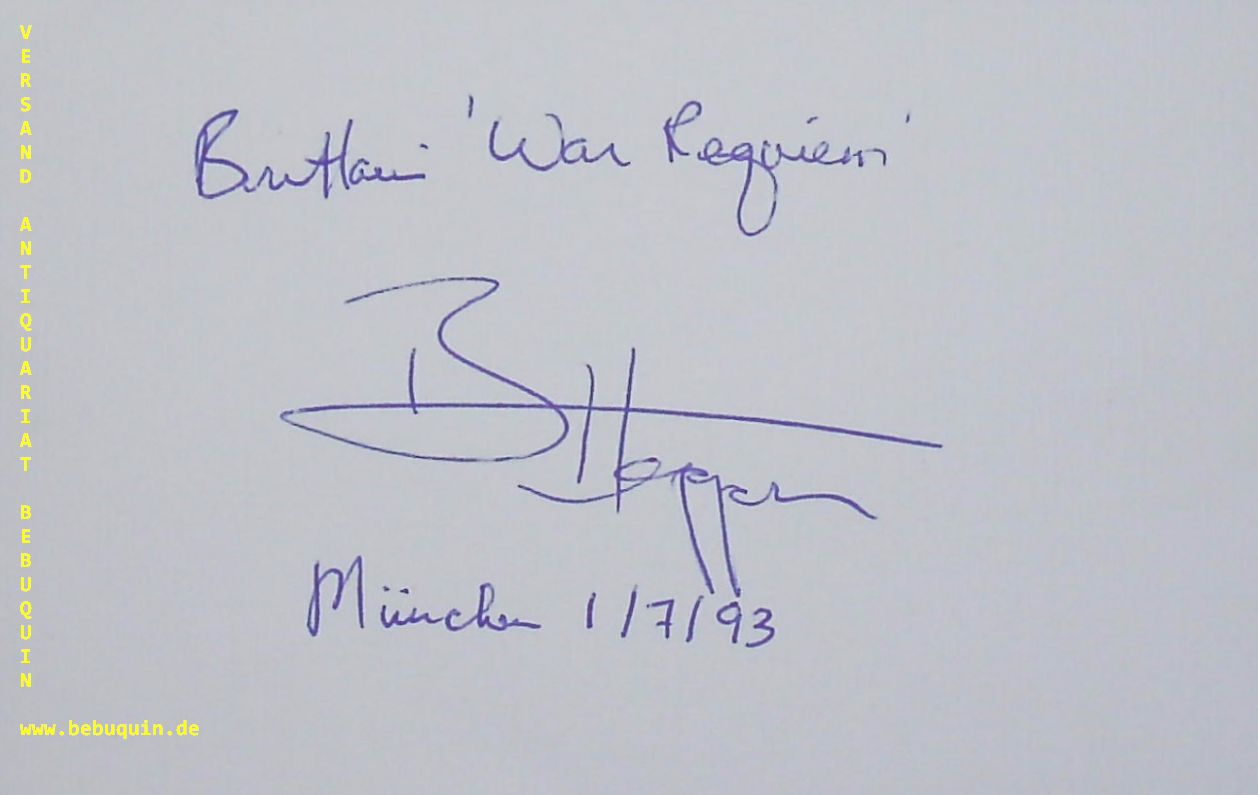 VERSAND ANTIQUARIAT BEBUQUIN
www.bebuquin.de
Brittain 'War Requiem'
München 1/7/93